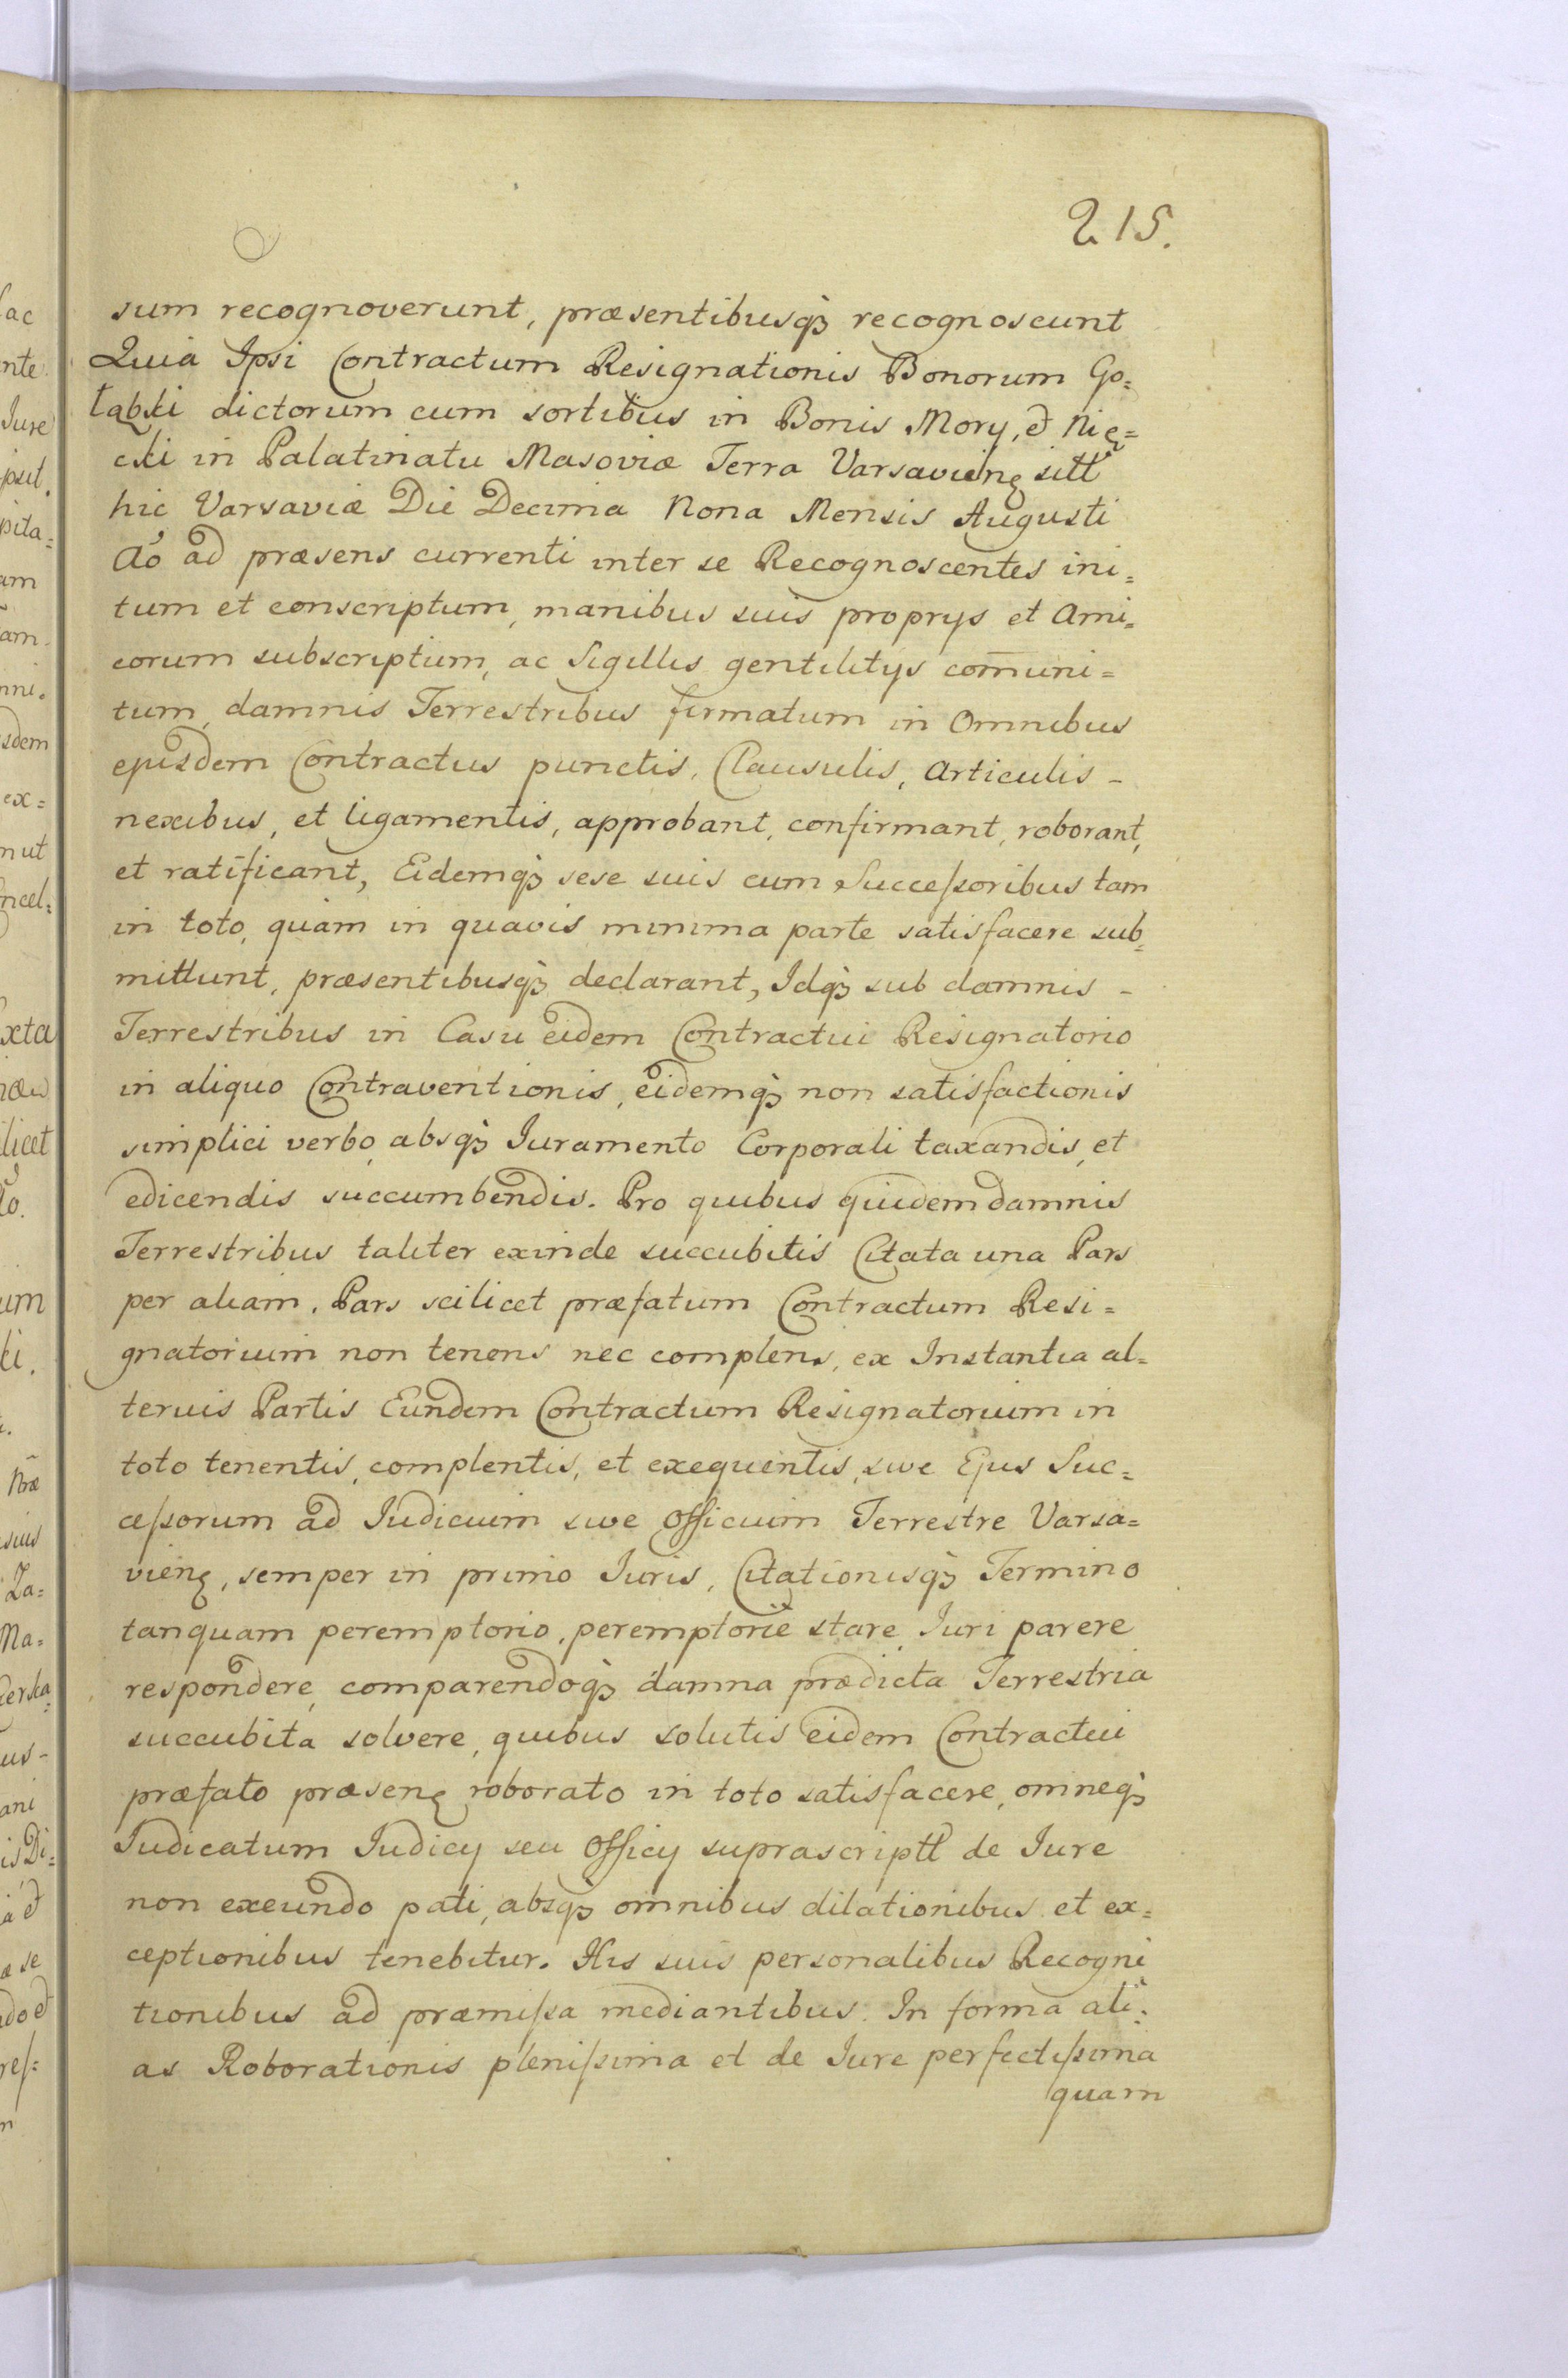 215.
sum recognoverunt, præsentibusq3 recognoscunt
Quia Ipsi Contractum Resignationis Bonorum Go=
łąbki dictorum cum sortibus in Bonis Mory, et Nię=
cki in Palatinatu Masoviæ Terra Varsavieñ sitt
hic Varsaviæ Die Decima Nona Mensis Augusti
Aõ ad præsens currenti inter se Recognoscentes ini=
tum et conscriptum, manibus suis proprys et Ami=
corum subscriptum, ac Sigillis gentilitys com̃uni=
tum, damnis Terrestribus firmatum in Omnibus
ejusdem Contractus punctis, Clausulis, Articulis -
nexibus, et ligamentis, approbant, confirmant, roborant,
et ratificant, Eidemq3 sese suis cum Successoribus tam
in toto, quàm in quavis minima parte satisfacere sub=
mittunt, præsentibusq3 declarant, Idq3 sub damnis -
Terrestribus in Casu eidem Contractui Resignatorio
in aliquo Contraventionis, eidemq3 non satisfactionis
simplici verbo, absq3 Iuramento Corporali taxandis, et
edicendis succumbendis. Pro quibus quidem damnis
Terrestribus taliter exinde succubitis Citata una Pars
per aliam. Pars scilicet præfatum Contractum Resi=
gnatorium non tenens nec complens, ex Instantia al=
terius Partis Eundem Contractum Resignatorium in
toto tenentis, complentis, et exequentis, sive Ejus Suc=
cessorum ad Iudicium sive Officium Terrestre Varsa=
vieñ, semper in primo Iuris, Citationisq3 Termino
tanquam peremptorio, peremptorie stare, Iuri parere
respondere, comparendoq3 damna prædicta Terrestria
succubita solvere, quibus solutis eidem Contractui
præfato præseñ roborato in toto satisfacere, omneq3
Iudicatum Iudicy seu Officy suprascriptt de Iure
non exeundo pati, absq3 omnibus dilationibus et ex=
ceptionibus tenebitur. His suis personalibus Recogni
tionibus ad præmissa mediantibus. In forma ali=
as Roborationis plenissima et de Iure perfectissima
quam